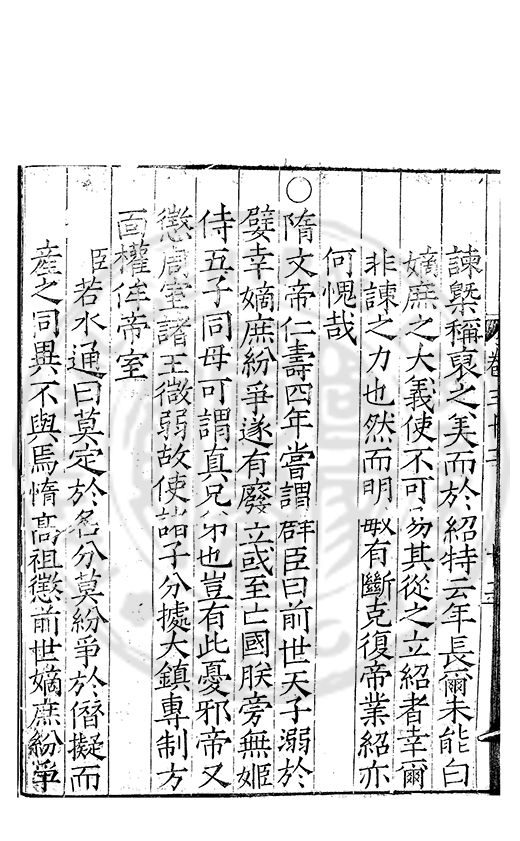 諫槩稱裒之美而於紹特云年長爾未能白
嫡庶之大義使不可易其從之立紹者幸爾
非諫之力也然而明敏有斷克復帝業紹亦
何愧哉
○隋文帝仁壽四年嘗謂群臣曰前世天子溺於
嬖幸嫡庶紛爭遂有廢立或至亡國朕旁無姬
侍五子同母可謂真兄弟也豈有此憂邪帝又
懲周室諸王微弱故使諸子分據大鎮專制方
面權侔帝室
臣若水通曰莫定於名分莫紛爭於僭擬而
産之同異不與焉惰高祖懲前世嫡庶紛爭